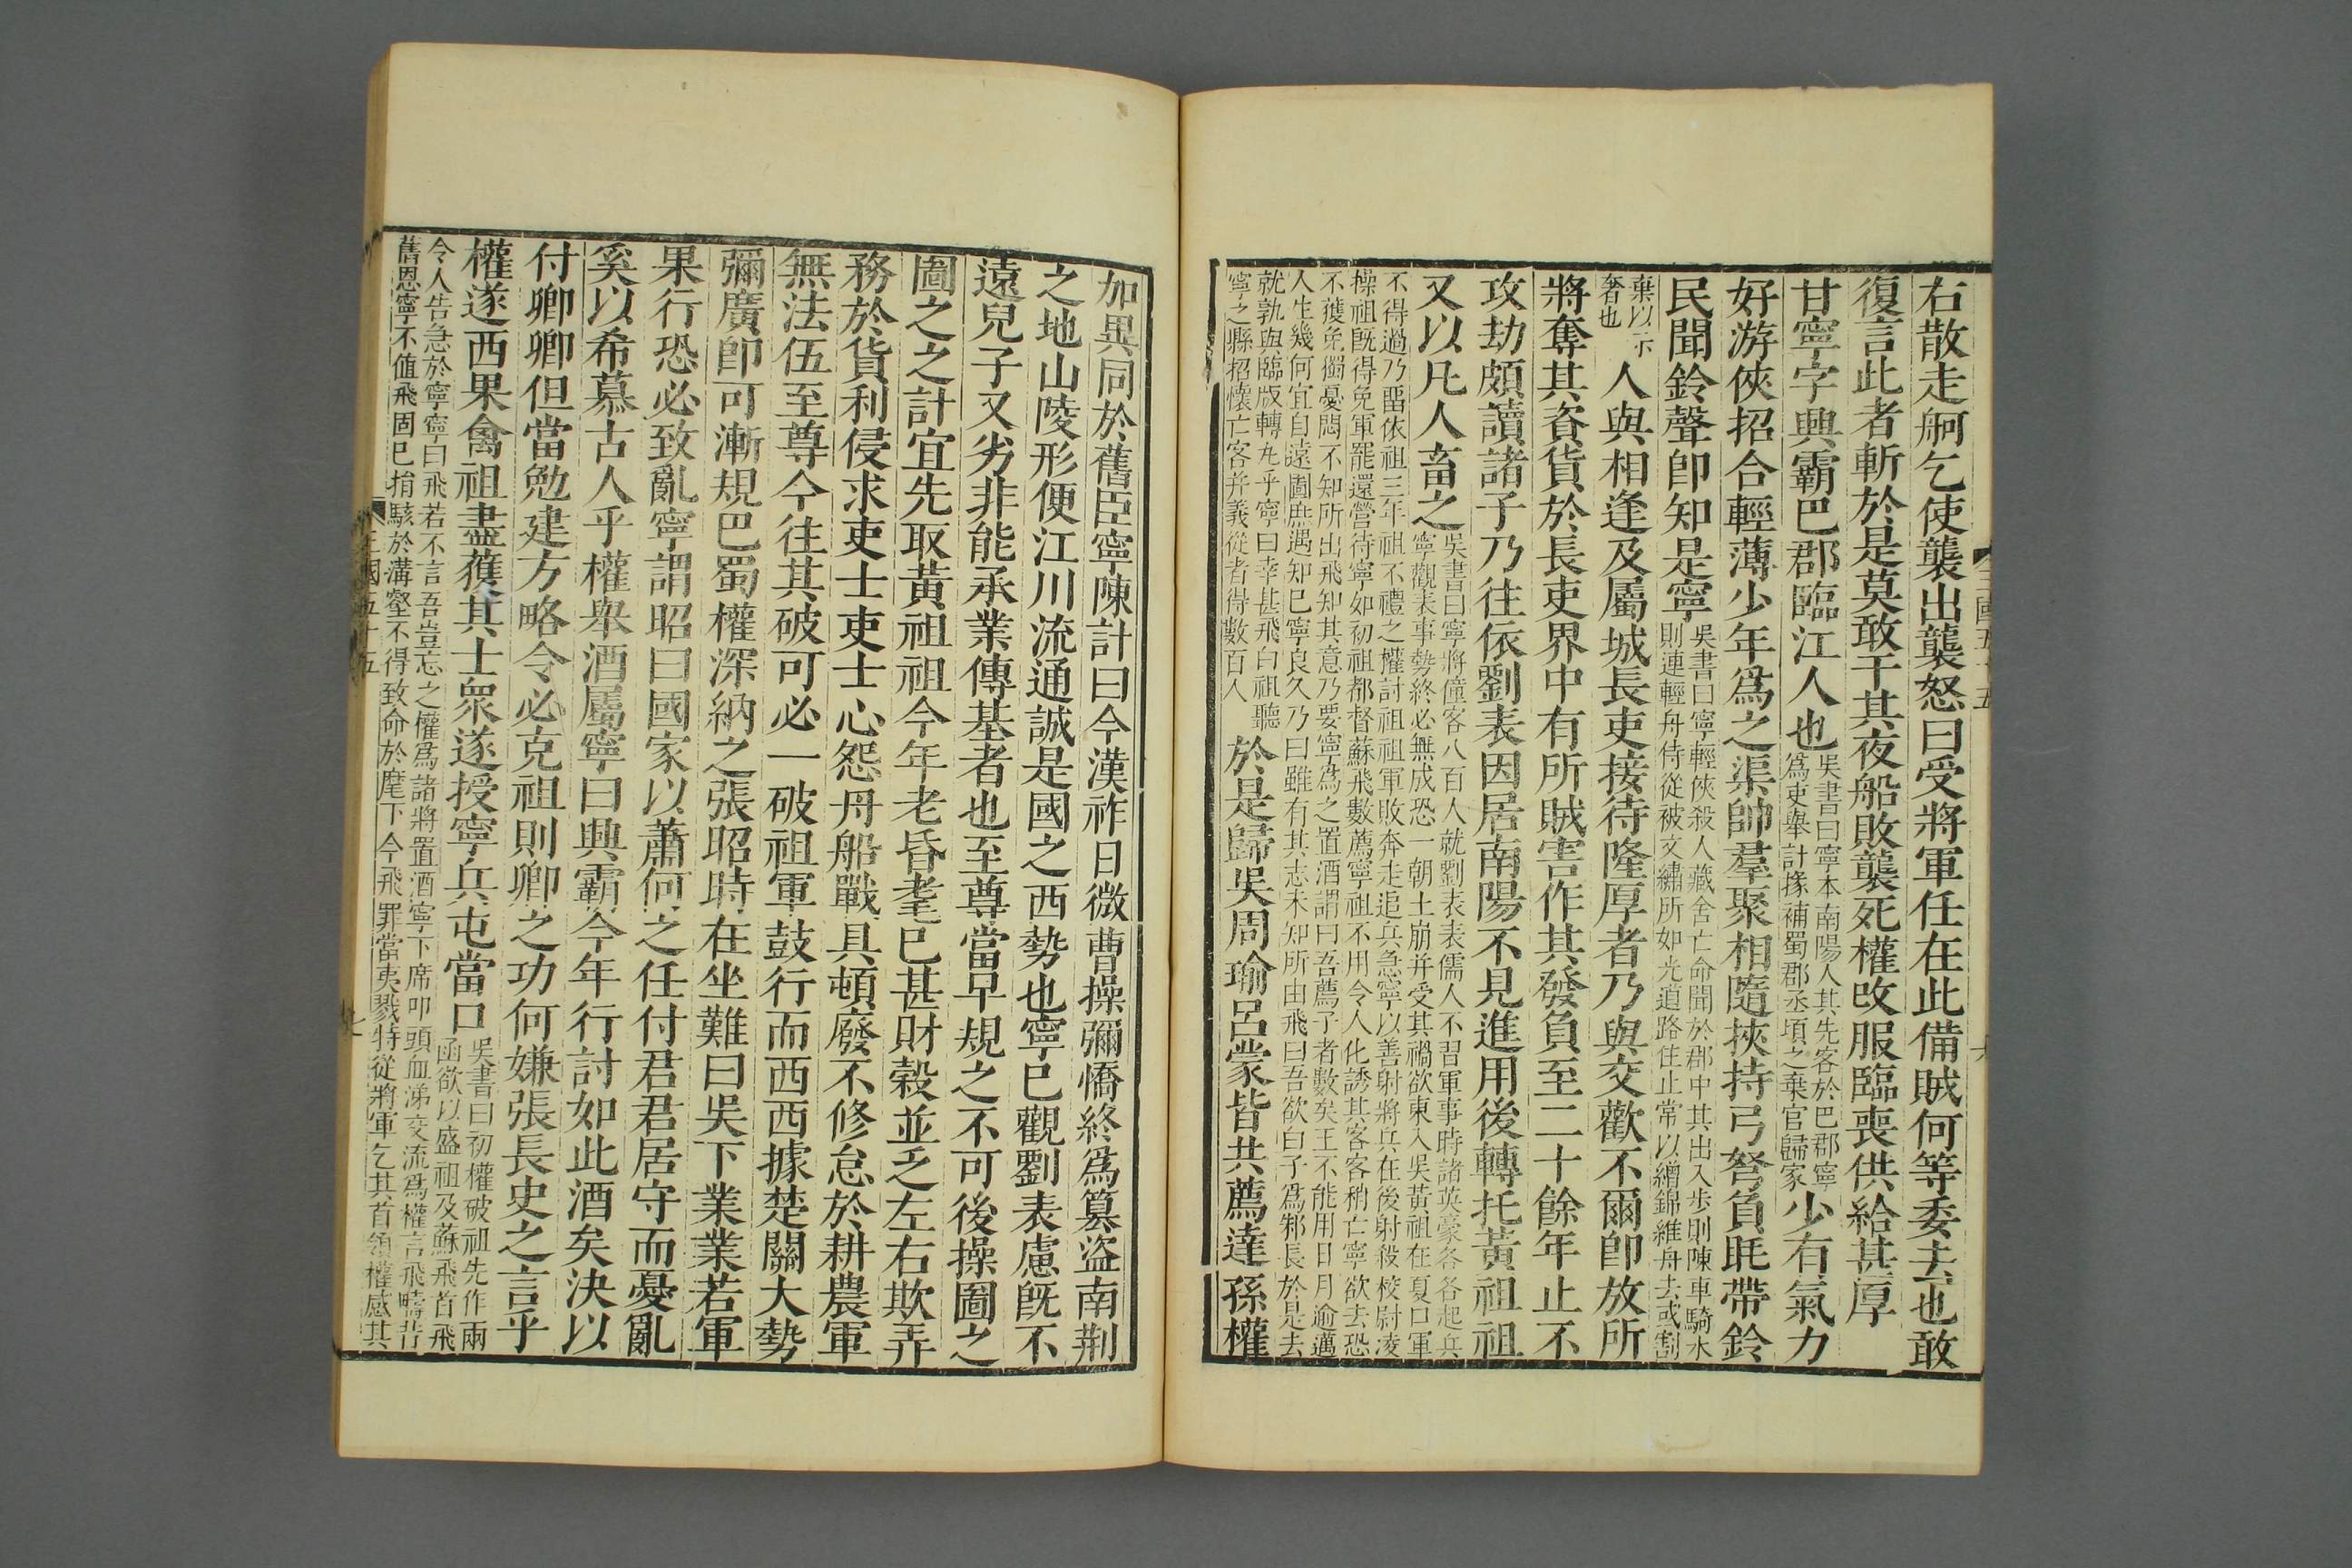 右散走舸乞使襲出襲怒曰受將軍任在此備賊何等委去也敢
復言此者斬於是莫敢干其夜船敗襲死權改服臨喪供給甚厚
甘寧字興霸巴郡臨江人也
吳書曰寧本南陽人其先客於巴郡寧
為吏舉計掾補蜀郡丞頃之棄官歸家
少有氣力
好游俠招合輕薄少年爲之渠帥羣聚相隨挾持弓弩負毦帶鈴
民聞鈴聲卽知是寧
吳書曰寧輕俠殺人藏舍亡命聞於郡中其出入步則陳車騎水
則連輕舟侍從被文繡所如光道路住止常以繒錦維舟去或割
棄以示
奢也
人與相逢及屬城長吏接待隆厚者乃與交歡不爾卽放所
將奪其資貨於長吏界中有所賊害作其發負至二十餘年止不
攻劫頗讀諸子乃往依劉表因居南陽不見進用後轉托黃祖祖
又以凡人畜之
吳書曰寧將僮客八百人就劉表表儒人不習軍事時諸英豪各各起兵
寧觀表事勢終必無成恐一朝土崩并受其禍欲東入吳黃祖在夏口軍
不得過乃畱依祖三年祖不禮之權討祖祖軍敗奔走追兵急寧以善射將兵在後射殺校尉凌
操祖旣得免軍罷還營待寧如初祖都督蘇飛數薦寧祖不用令人化誘其客客稍亡寧欲去恐
不獲免獨憂悶不知所出飛知其意乃要寧爲之置酒謂曰吾薦子者數矣王不能用日月逾邁
人生幾何宜自遠圖庶遇知己寧良久乃曰雖有其志未知所由飛曰吾欲白子爲邾長於是去
就孰與臨版轉丸乎寧曰幸甚飛白祖聽
寧之縣招懷亡客并義從者得數百人
於是歸吳周瑜呂蒙皆共薦達孫權
加異同於舊臣寧陳計曰今漢祚日微曹操彌憍終爲篡盜南荆
之地山陵形便江川流通誠是國之西勢也寧已觀劉表慮旣不
遠兒子又劣非能承業傳基者也至尊當早規之不可後操圖之
圖之之計宜先取黃祖祖今年老昏耄已甚財穀並乏左右欺弄
務於貨利侵求吏士吏士心怨舟船戰具頓廢不修怠於耕農軍
無法伍至尊今往其破可必一破祖軍鼓行而西西據楚關大勢
彌廣卽可漸規巴蜀權深納之張昭時在坐難曰吳下業業若軍
果行恐必致亂寧謂昭曰國家以蕭何之任付君君居守而憂亂
奚以希慕古人乎權舉酒屬寧曰興霸今年行討如此酒矣決以
付卿卿但當勉建方略令必克祖則卿之功何嫌張長史之言乎
權遂西果禽祖盡獲其士衆遂授寧兵屯當口
吳書曰初權破祖先作兩
函欲以盛祖及蘇飛首飛
令人告急於寧寧曰飛若不言吾豈忘之權爲諸將置酒寧下席叩頭血涕交流爲權言飛疇昔
舊恩寧不值飛固已捐骸於溝壑不得致命於麾下今飛罪當夷戮特從將軍乞其首領權感其